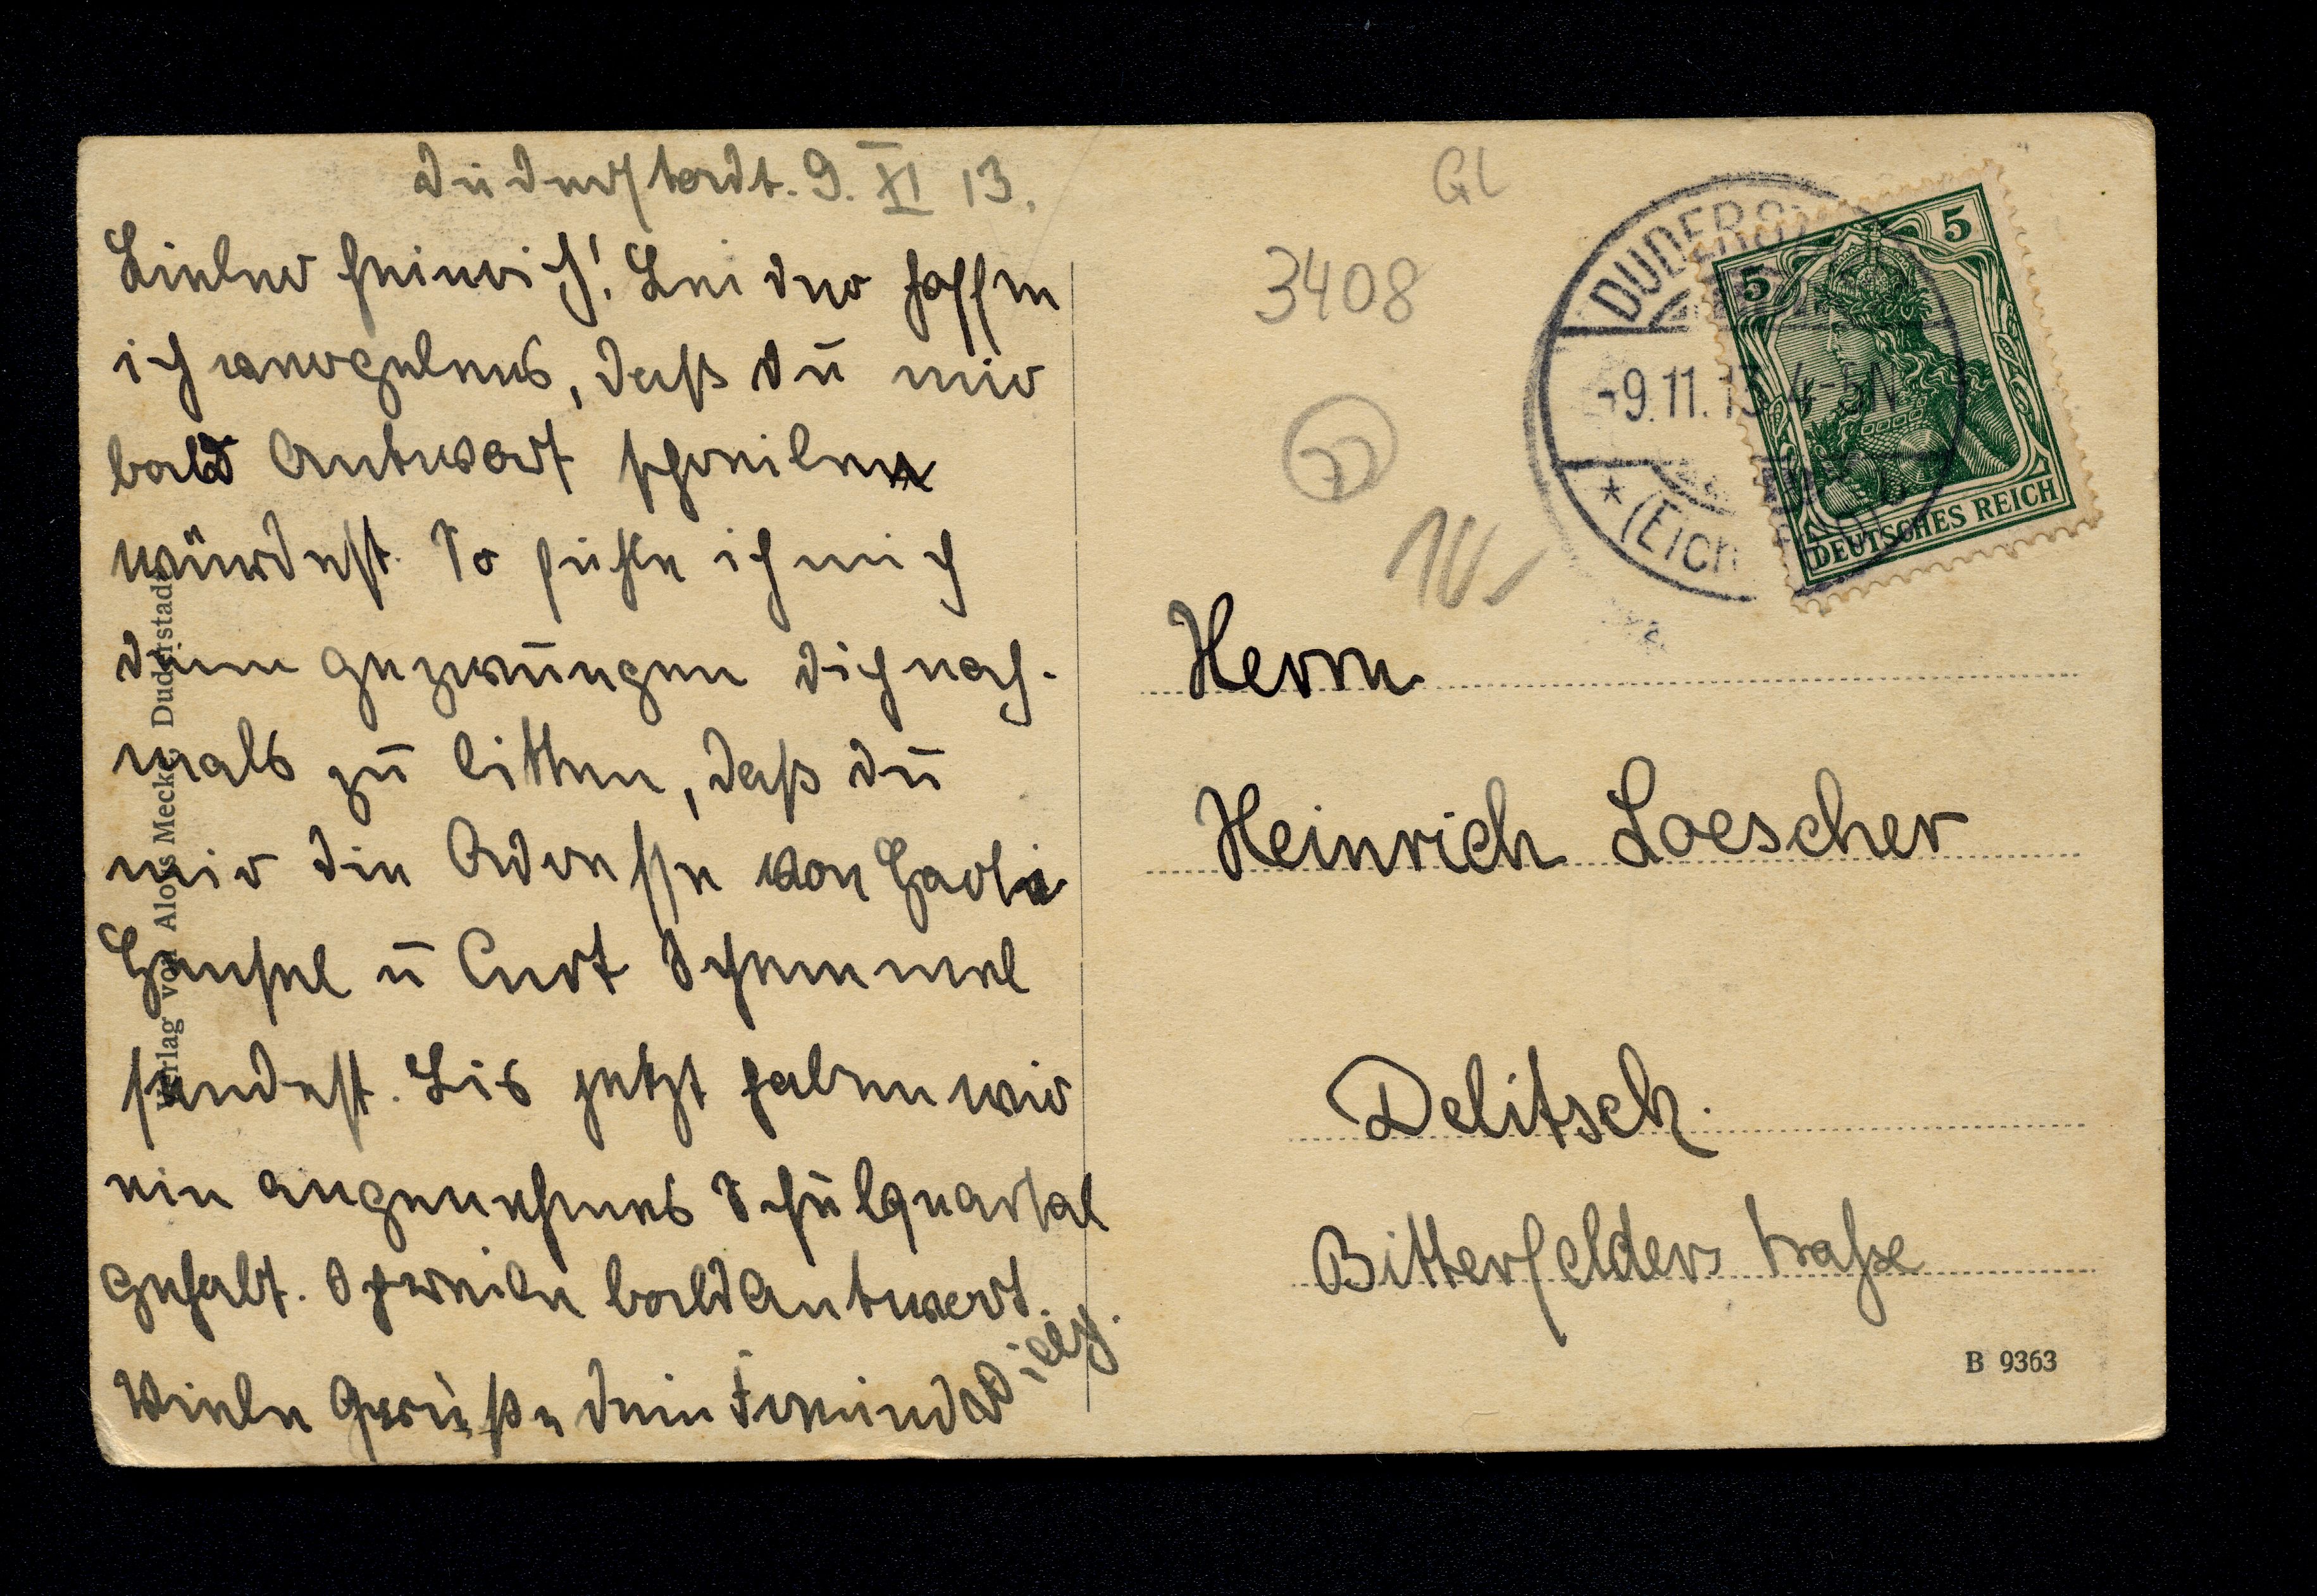 Duderstadt. 9. XI 13.
Lieber Heinrich! Leider hoffte
ich vergebens, daß du mir
bald Antwort schreiben
würdest. So fühle ich mich
denn gezwungen dich noch-
mals zu bitten, daß du
mir die Adresse von
Hensel u Curt Schemmel
sendest. Bis jetzt haben wir
ein angenehmes Schulquartal
gehabt. Schreibe bald Antwort.
Viele Grüße dein Freund
Willy.
Verlag von Alois Mecke, Duderstadt
GL
3408
DUDERST
-9.11.13.4-5N
*(Eich
5
5
DEUTSCHES REICH
Herrn
Heinrich Loescher
Delitsch.
Bitterfelderstraße
B 9363